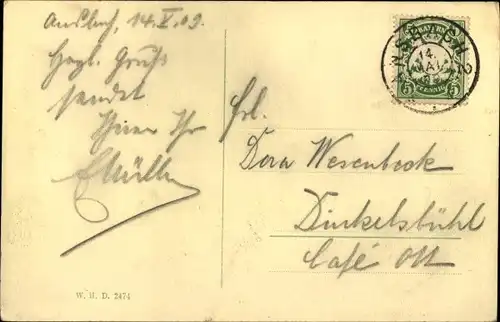 Ansbach, 14.V.09.
Hzgl. Gruß
sendet
Ihnen Ihr
EMüller
Frl.
Dora Wesenbeck
Dinkelsbühl
Café Ott
BAYERN
5 PFENNIG 5
ANSBACH 2
14. MAI
W. H. D. 2474